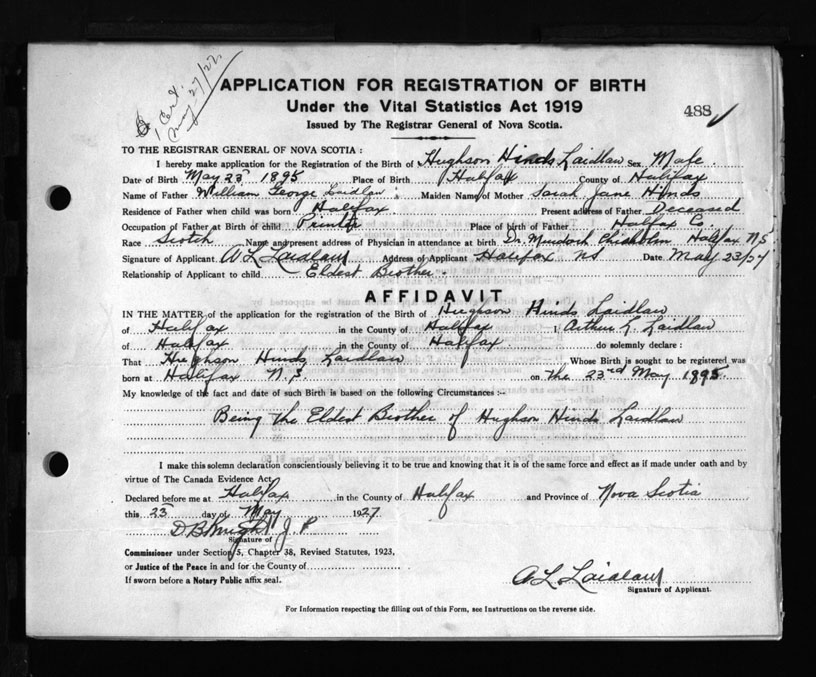 1 Cert.
May 27/27.
APPLICATION FOR REGISTRATION OF BIRTH
Under the Vital Statistics Act 1919
488
Issued by The Registrar General of Nova Scotia.
TO THE REGISTRAR GENERAL OF NOVA SCOTIA:
I hereby make application for the Registration of the Birth of Hughson Hinds Laidlaw Sex Male
Date of Birth May 23 1895 Place of Birth Halifax County of Halifax
Name of Father William George Laidlaw Maiden Name of Mother Sarah Jane Hinds
Residence of Father when child was born Halifax Present address of Father Deceased
Occupation of Father at Birth of child Printer Place of birth of Father Halifax Co
Race Scotch Name and present address of Physician in attendance at birth Dr. Murdoch Chisholm Halifax N S
Signature of Applicant A L Laidlaw Address of Applicant Halifax NS Date May 23/27
Relationship of Applicant to child Eldest Brother.
AFFIDAVIT
IN THE MATTER of the application for the registration of the Birth of Hughson Hinds Laidlaw
of Halifax in the County of Halifax I, Arthur L. Laidlaw
of Halifax in the County of Halifax do solemnly declare:
That Hughson Hinds Laidlaw Whose Birth is sought to be registered was
born at Halifax N.S. on the 23rd May 1895.
My knowledge of the fact and date of such Birth is based on the following Circumstances:-
Being the Eldest Brother of Hughson Hinds Laidlaw
I make this solemn declaration conscientiously believing it to be true and knowing that it is of the same force and effect as if made under oath and by
virtue of The Canada Evidence Act.
Declared before me at Halifax in the County of Halifax and Province of Nova Scotia
this 23 day of May 1927
D B Knight J. P
Signature of
Commissioner under Section 5, Chapter 38, Revised Statutes, 1923,
or Justice of the Peace in and for the County of
If sworn before a Notary Public affix seal.
A L Laidlaw
Signature of Applicant.
For Information respecting the filling out of this Form, see Instructions on the reverse side.